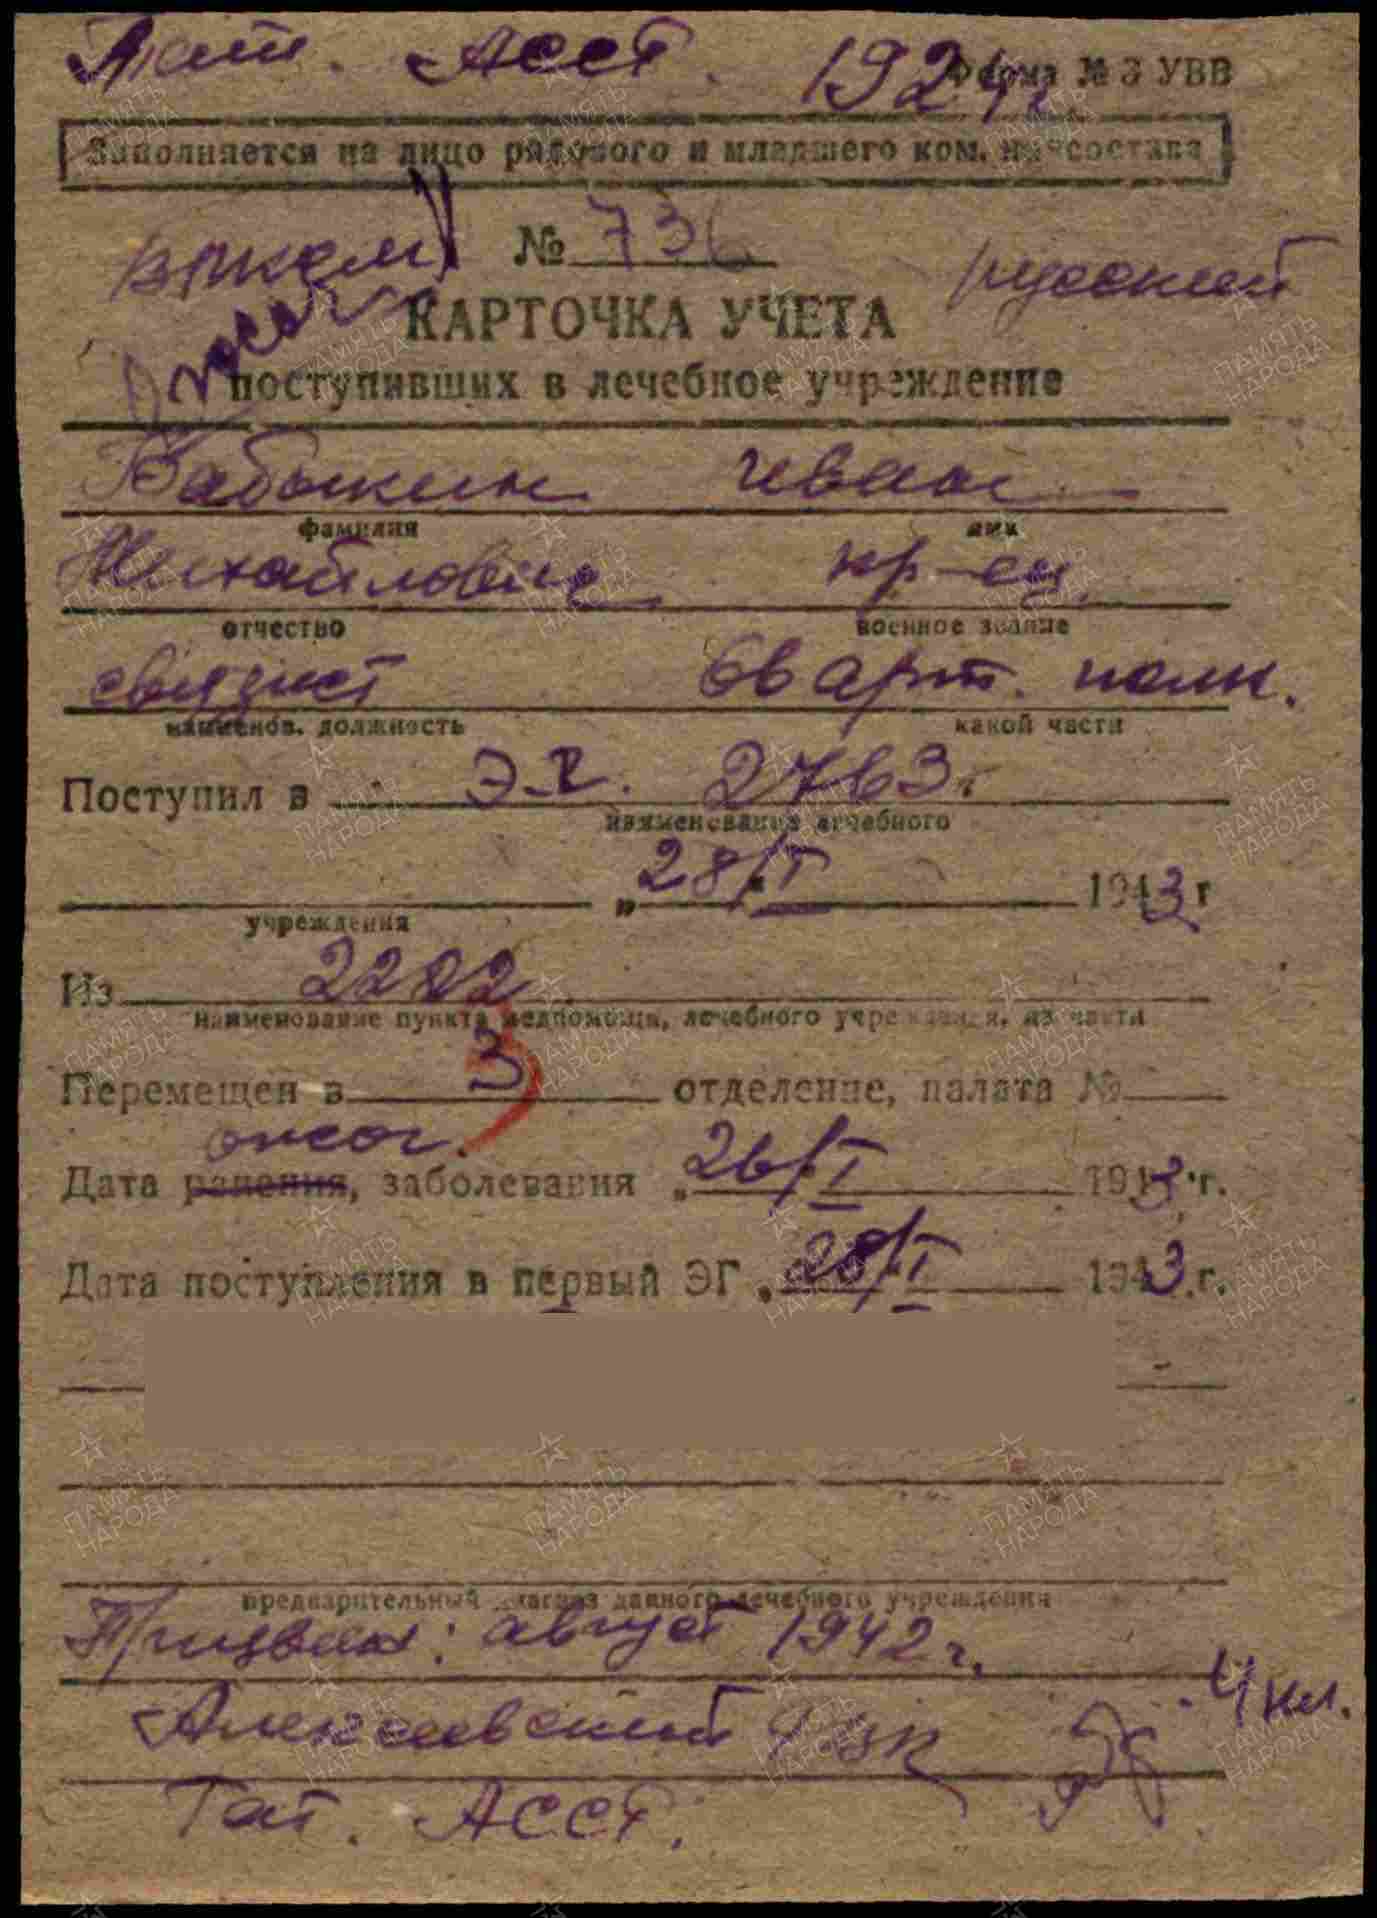 Тат. АССР. 1924г.
Форма № 3 УВВ
Заполняется на лицо рядового и младшего ком. начсостава
№ 736
русский
КАРТОЧКА УЧЕТА
поступивших в лечебное учреждение
Бабыкин Иван
фамилия имя
Михайлович кр-ец
отчество военное звание
связист 6в арт. полк.
наименов. должность какой части
Поступил в Э.Г. 2763.
наименование лечебного
„28/I 1943 г
учреждения
Из 2202
наименование пункта медпомощи, лечебного учреждения, из части
Перемещен в 3 отделение, палата №
ожог.
Дата ранения, заболевания „26/I 1943 г.
Дата поступления в первый ЭГ „28/I 1943 г.
предварительный диагноз данного лечебного учреждения
Призван: август 1942 г.
4 кл.
Алексеевский РВК
Тат. АССР.
ПАМЯТЬ НАРОДА